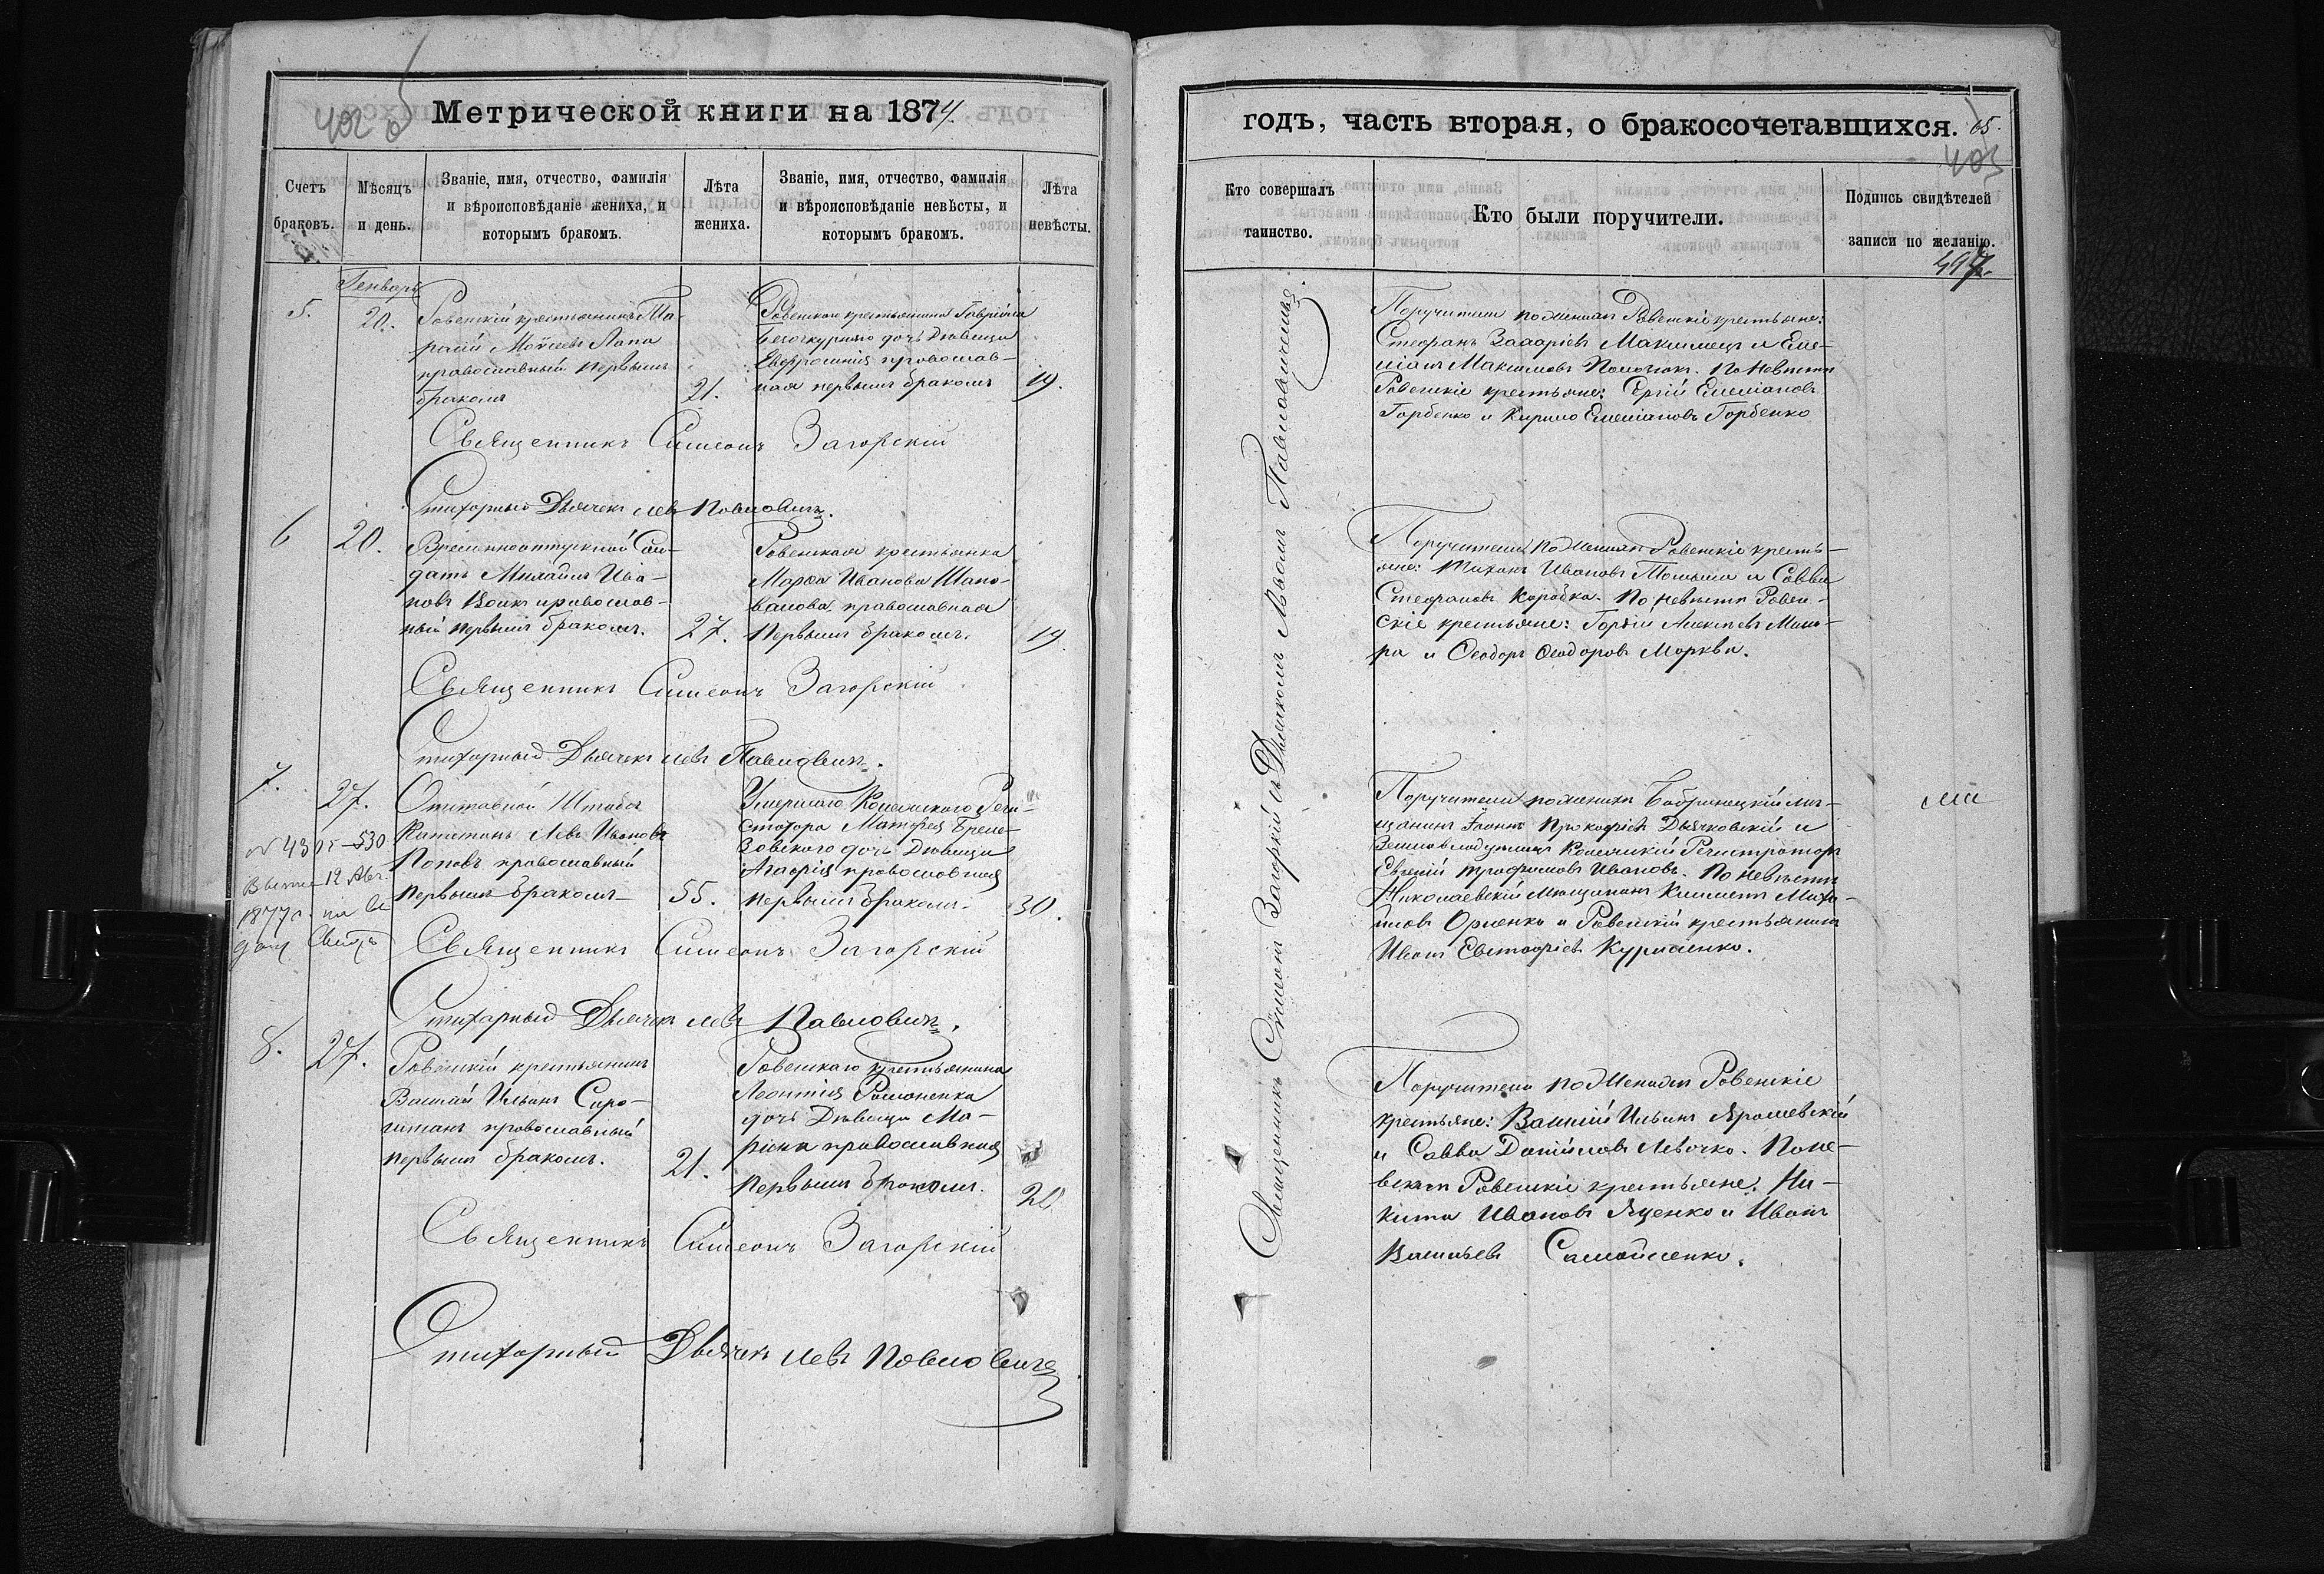 402 об
Метрической книги на 1874
Счетъ браковъ.
Мѣсяцъ и день.
Званіе, имя, отчество, фамилія
и вѣроисповѣданіе жениха, и
которымъ бракомъ.
Лѣта
жениха.
Званіе, имя, отчество, фамилія
и вѣроисповѣданіе невѣсты, и
которымъ бракомъ.
Лѣта
невѣсты.
Генварь
5.
20.
Ровенскій крестьянинъ Та-
расій Моисеевъ Лапа
православный первымъ
бракомъ
21.
Ровенскаго крестьянина Гавріила
дочь Дѣвица
Евфросинія православ-
ная первымъ бракомъ
19.
Священникъ Симеонъ Загорскій
Стихарный Дьячекъ Левъ Павловичъ.
6
20.
Временноотпускной Сол-
датъ Михаилъ Ива-
новъ Вовкъ православ-
ный первымъ бракомъ.
27.
Ровенская крестьянка
Марѳа Иванова Шапо-
валова православная
первымъ бракомъ.
19.
Священникъ Симеонъ Загорскій
Стихарный Дьячекъ Левъ Павловичъ.
7.
27.
Отставной Штабсъ
Капитанъ Левъ Ивановъ
Поповъ православный
первымъ бракомъ
55.
Умершаго Коллежскаго Реги-
стратора Матѳея Бреле-
зовскаго дочь Дѣвица
Агаѳія православная
первымъ бракомъ
30.
№ 430
530
12 Авг.
1877 г.
Священникъ Симеонъ Загорскій
Стихарный Дьячекъ Левъ Павловичъ.
8.
27.
Ровенскій крестьянинъ
Василій Ильинъ Сиро-
штанъ православный
первымъ бракомъ.
21.
Ровенскаго крестьянина
Леонтія Романенка
дочь Дѣвица Ма-
рина православная
первымъ бракомъ.
20
Священникъ Симеонъ Загорскій
Стихарный Дьячекъ Левъ Павловичъ
годъ, часть вторая, о бракосочетавшихся.
65.
403
Кто совершалъ
таинство.
Кто были поручители.
Подпись свидѣтелей
записи по желанію.
Священникъ Симеонъ Загорскій съ Дьячкомъ Львомъ Павловичемъ.
Поручители по женихѣ Ровенскіе крестьяне:
Стефанъ Захаріевъ Максимецъ и Еме-
ліанъ Максимовъ По невѣстѣ
Ровенскіе крестьяне: Сергій Емеліановъ
Горбенко и Кирило Емеліановъ Горбенко
Поручители по женихѣ Ровенскіе кресть-
яне: Тихонъ Ивановъ и Савва
Стефановъ Коробка. По невѣстѣ Ровен-
скіе крестьяне: Гордій Алексѣевъ Мако-
ра и Ѳеодоръ Ѳеодоровъ Морква.
Поручители по женихѣ Бобринецкій мѣ-
щанинъ Іоаннъ Прокофіевъ Дьячковскій и
Коллежскій Регистраторъ
Евгеній Трофимовъ Ивановъ. По невѣстѣ
Николаевскій Мѣщанинъ Климентъ Миха-
йловъ Орленко и Ровенскій крестьянинъ
Иванъ Евстафіевъ Курпленко.
Поручители по женихѣ Ровенскіе
крестьяне: Василій Ильинъ Ярошевскій
и Савва Даніиловъ Левочко. По не-
вѣстѣ Ровенскіе крестьяне: Ни-
кита Ивановъ Яценко и Иванъ
Васильевъ Самойленко.